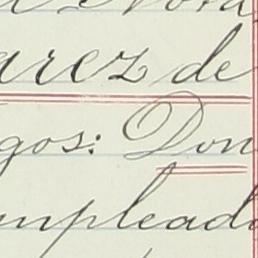 arez de
gos: Don
mplead